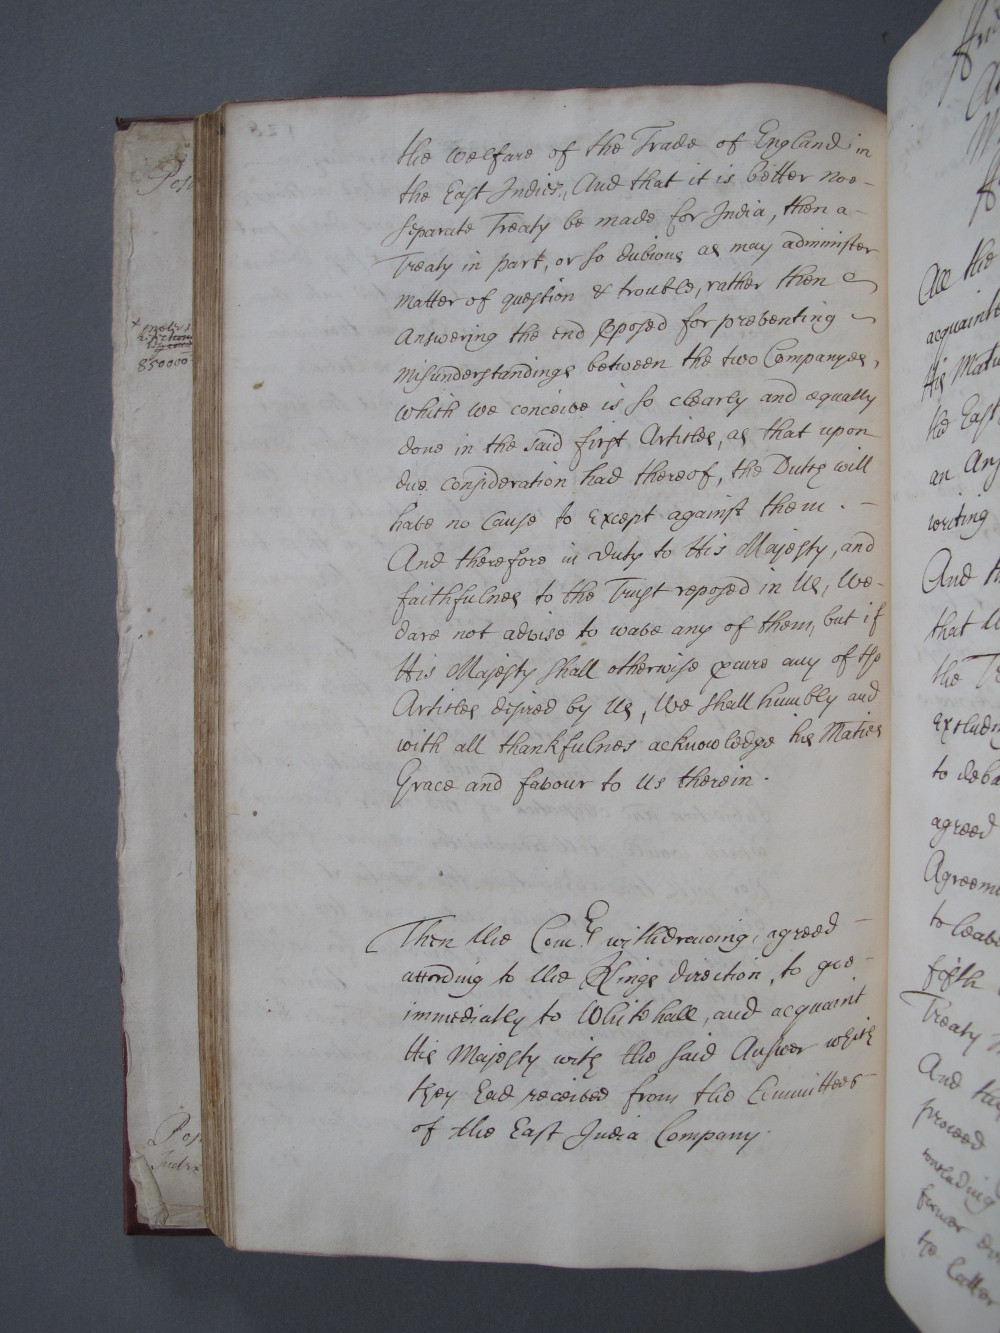 the welfare of the Trade of England in
the East Indies, And that it is better noe -
separate Treaty be made for India, then a -
Treaty in part, or so dubious as may administer
matter of question & trouble, rather then
Answering the end pposed for preventing
misunderstandings between the two Companyes,
which we conceive is so clearly and equally
done in the said first Articles, as that upon
due consideration had thereof, the Dutch will
have no Cause to Except against them. -
And therefore in duty to His Majesty, and
faithfulnes to the Trust reposed in Us, We -
dare not advise to wave any of them, but if
His Majesty shall otherwise pcure any of the
Articles desired by Us, We shall humbly and
with all thankfulnes acknowledge his Maties
Grace and favour to Us therein.
Then the Com.rs withdrawing, agreed -
according to the Kings direction, to goe -
immediatly to Whitehall, and acquaint
His Majesty with the said Answer which
they had received from the Committees -
of the East India Company.
850000
All the
acquainte
His Matie
the East
an Ans
writing
And th
that
the Tr
Excludin
to deba
agreed
Agreeme
to leave
fifth
Treaty
And
proceed
concluding
former
the latter